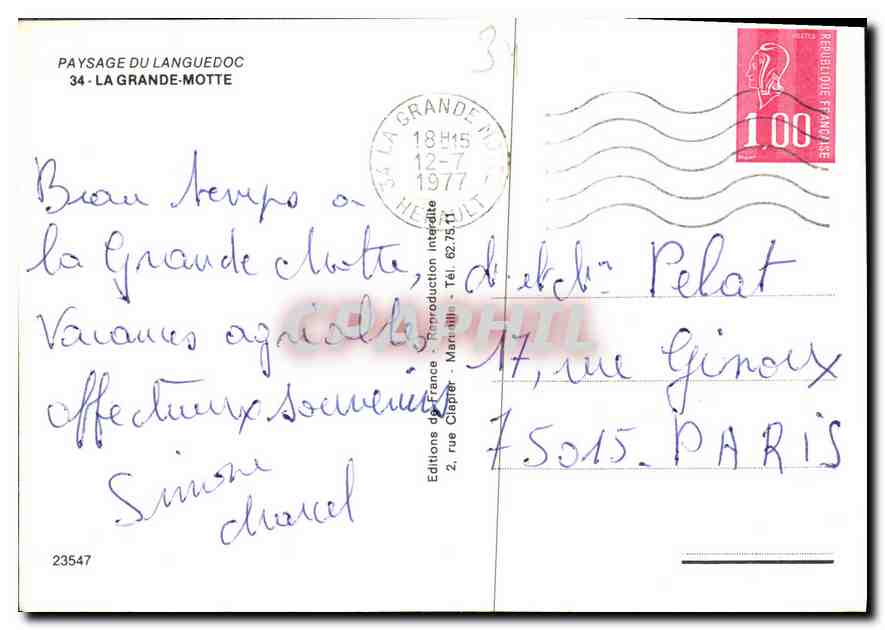 PAYSAGE DU LANGUEDOC
34 - LA GRANDE-MOTTE
3
34 LA GRANDE MOTTE
18H15
12-7
1977
HERAULT
POSTES
REPUBLIQUE FRANÇAISE
1,00
Beau temps a
la Grande Motte,
Vacances agréables
affectueux souvenirs
Simone
Marcel
23547
Editions de France - Reproduction interdite
2, rue Clapier - Marseille - Tél. 62.75.11
CPAPHIL
M. et Mme Pelat
17, rue Ginoux
75015 - PARIS